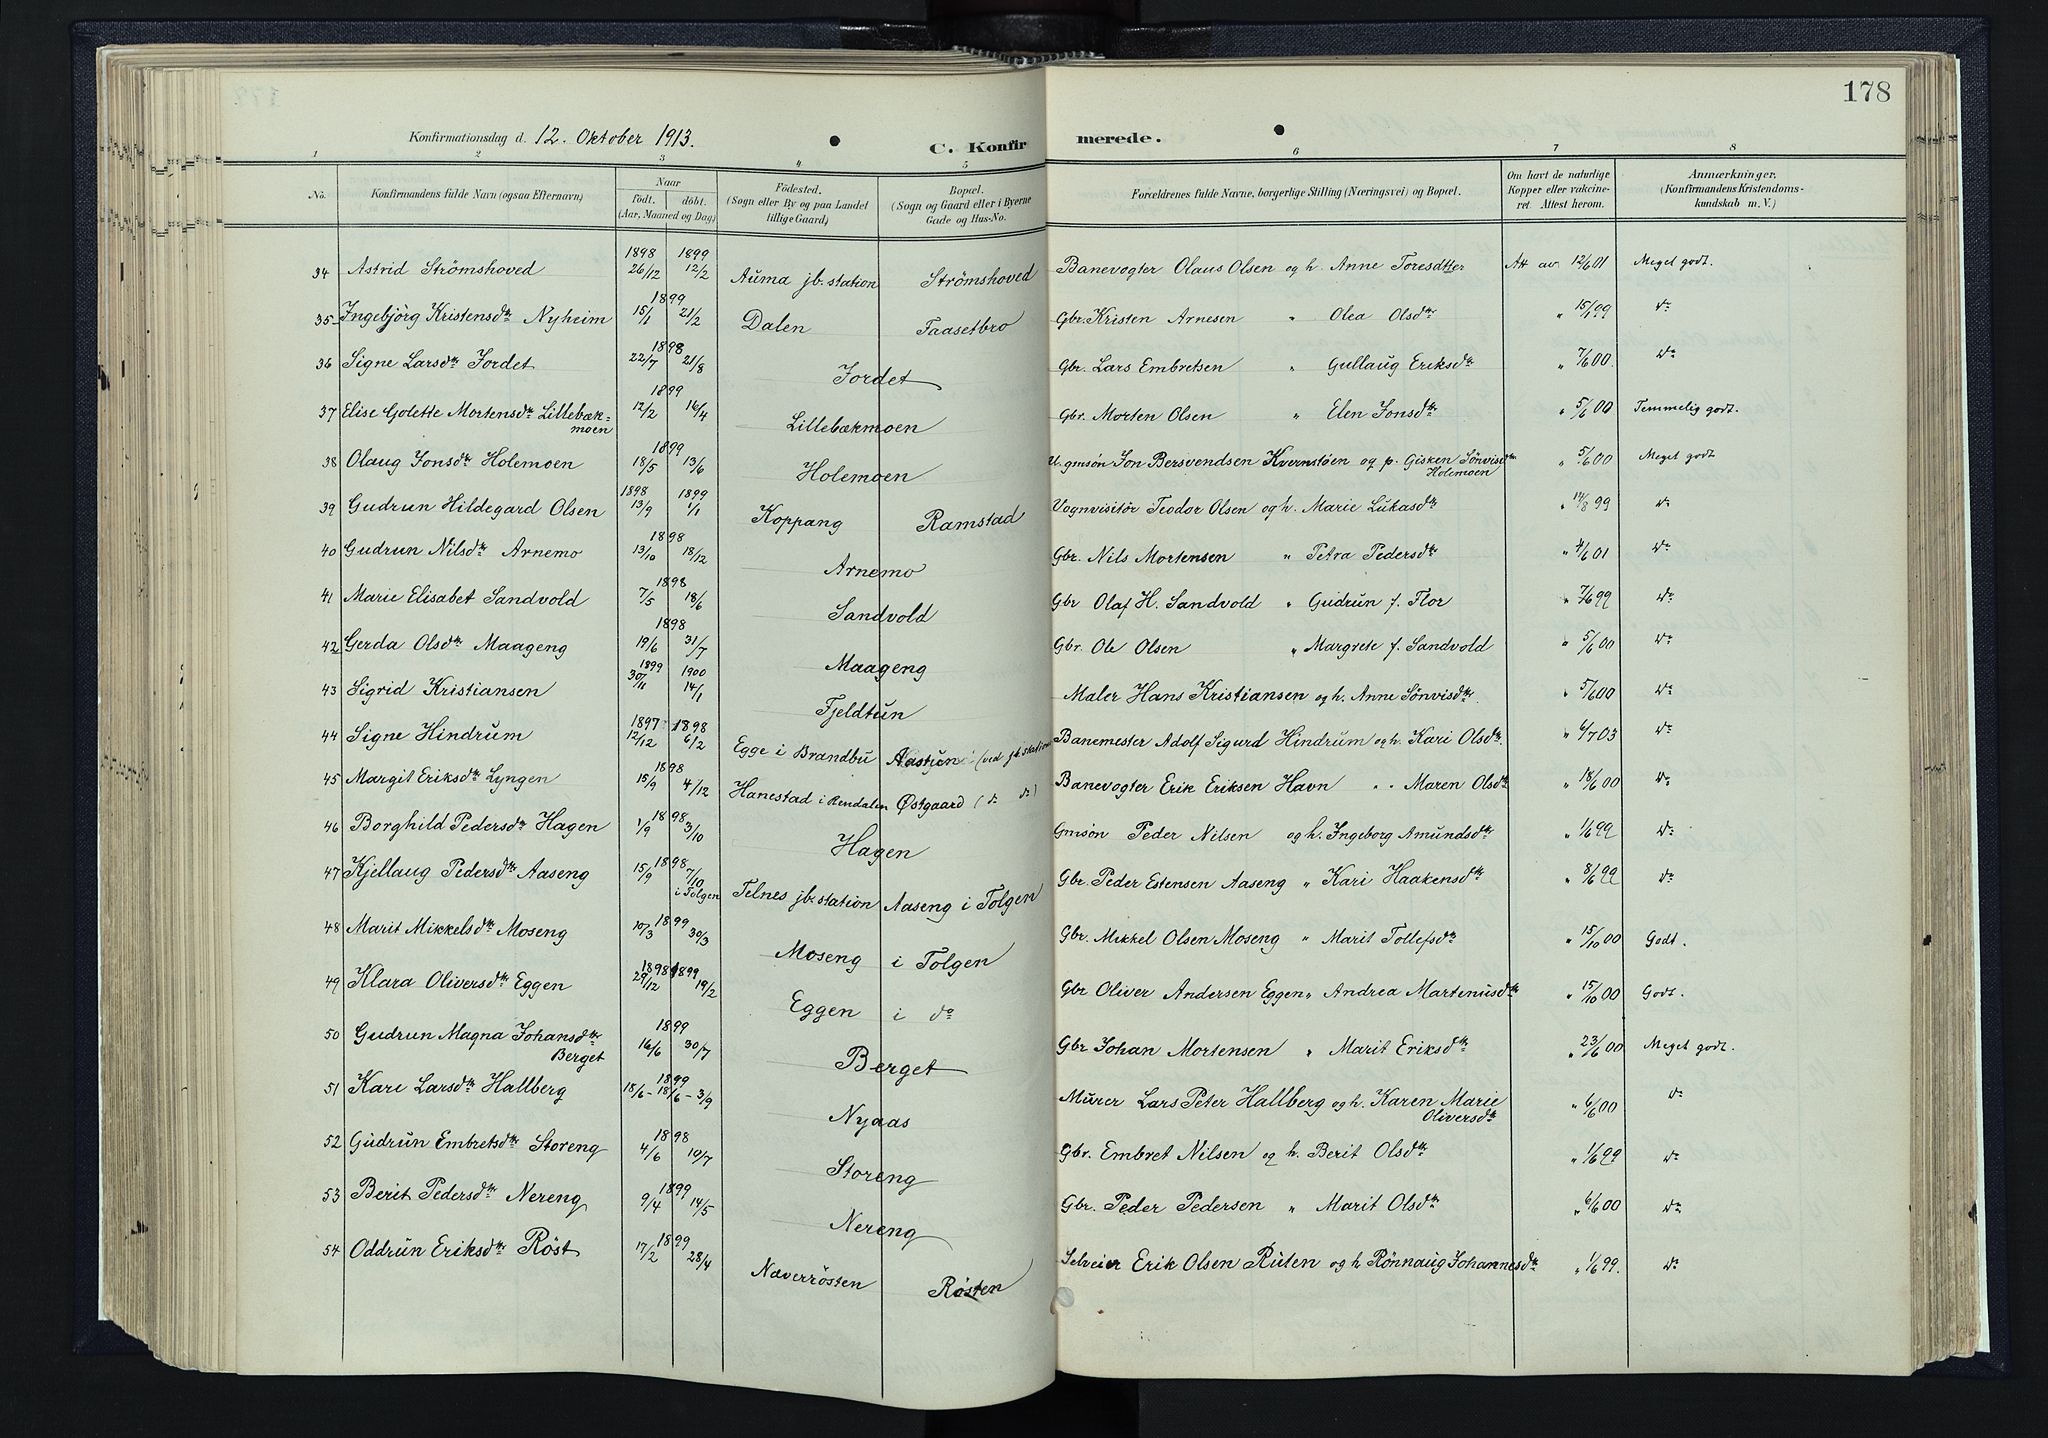 178
Konfirmationsdag d. 12. Oktober 1913.
C. Konfirmerede.
1 2 3 4 5 6 7 8
No. Konfirmandens fulde Navn (ogsaa Efternavn) Naar født. døbt. (Aar, Maaned og Dag) Fødested. (Sogn eller By og paa Landet tillige Gaard) Bopæl. (Sogn og Gaard eller i Byerne Gade og Hus-No. Forældrenes fulde Navne, borgerlige Stilling (Næringsvei) og Bopæl. Om havt de naturlige Kopper eller vakcineret. Attest herom. Anmærkninger. (Konfirmandens Kristendomskundskab m. V.)
34 Astrid Strömshoved 1898 26/12 1899 12/2 Auma jb.station Strömshoved Banevogter Olaus Olsen og h. Anne Toresdtter Att av. 12/6 01 Meget godt.
35 Ingebjörg Kristensdtr Nyheim 1899 15/1 21/2 Dalen Faasetbro Gbr. Kristen Arnesen " Olea Olsdtr " 15/1 99 do
36 Signe Larsdtr Jordet 1898 22/7 21/8 Jordet Gbr. Lars Embretsen " Gullaug Eriksdtr " 7/6 00. do
37 Elise Golette Mortensdtr Lillebækmoen 1899 12/2 16/4 Lillebækmoen Gbr. Morten Olsen " Elen Jonsdtr " 5/6 00 Temmelig godt.
38 Olaug Jonsdtr Holemoen 1899 18/5 13/6 Holemoen U. gmsön Jon Bersvendsen Kvernstöen og p. Gisken Sönvisdtr Holemoen " 5/6 00 Meget godt
39 Gudrun Hildegard Olsen 1898 13/9 1899 1/1 Koppang Ramstad Vognvisitör Teodor Olsen og h. Marie Lukasdtr " 14/8 99 do
40 Gudrun Nilsdtr Arnemo 1898 13/10 18/12 Arnemo Gbr. Nils Mortensen " Petra Pedersdtr " 4/6 01 do
41 Marie Elisabet Sandvold 1898 7/5 18/6 Sandvold Gbr Olaf H. Sandvold " Gudrun f. Flor " 7/6 99 do
42 Gerda Olsdtr Maageng 1898 19/6 31/7 Maageng Gbr. Ole Olsen " Margrete f. Sandvold " 5/6 00 do
43 Sigrid Kristiansen 1899 30/11 1900 14/1 Fjeldtun Maler Hans Kristiansen og h. Anne Sönvisdtr. " 5/6 00 do
44 Signe Hindrum 1897 12/12 1898 6/2 Egge i Brandbu Aastjern (ved jb.station Banemester Adolf Sigurd Hindrum og h. Kari Olsdtr. " 6/7 03 do
45 Margit Eriksdtr Lyngen 1898 15/9 4/12 Hanestad i Rendalen Østgaard (do do) Banevogter Erik Eriksen Havn " " Maren Olsdtr " 18/6 00 do
46 Borghild Pedersdtr Hagen 1898 1/9 3/10 Hagen Gmsön Peder Nilsen og h. Ingeborg Amundsdtr " 1/6 99 do
47 Kjellaug Pedersdtr Aaseng 1898 15/9 7/10 i Tolgen Telnes jb.station Aaseng i Tolgen Gbr. Peder Estensen Aaseng " Kari Haakensdtr " 8/6 99 do
48 Marit Mikkelsdtr Moseng 1899 10/3 30/3 Moseng i Tolgen Gbr. Mikkel Olsen Moseng " Marit Tollefsdtr " 15/10 00 Godt.
49 Klara Oliversdtr Eggen 1898 29/12 1899 19/2 Eggen i do Gbr Oliver Andersen Eggen " Andrea Martenusdtr " 15/10 00 Godt.
50 Gudrun Magna Johansdtr Berget 1899 16/6 30/7 Berget Gbr Johan Mortensen " Marit Eriksdtr " 23/6 00 Meget godt.
51 Kari Larsdtr Hallberg 1899 18/6 - 18/6 - 3/9 Nyaas Murer Lars Peter Hallberg og h. Karen Marie Oliversdtr " 6/6 00 do
52 Gudrun Embretsdtr Storeng 1898 4/6 10/7 Storeng Gbr. Embret Nilsen og h. Berit Olsdtr " 1/6 99 do
53 Berit Pedersdtr Nereng 1899 9/4 14/5 Nereng Gbr. Peder Pedersen " Marit Olsdtr " 6/6 00 do
54 Oddrun Eriksdtr Röst 1899 17/2 28/4 Næverrösten Rösten Selveier Erik Olsen Ruten og h Rönnaug Johannesdtr " 1/6 99. do